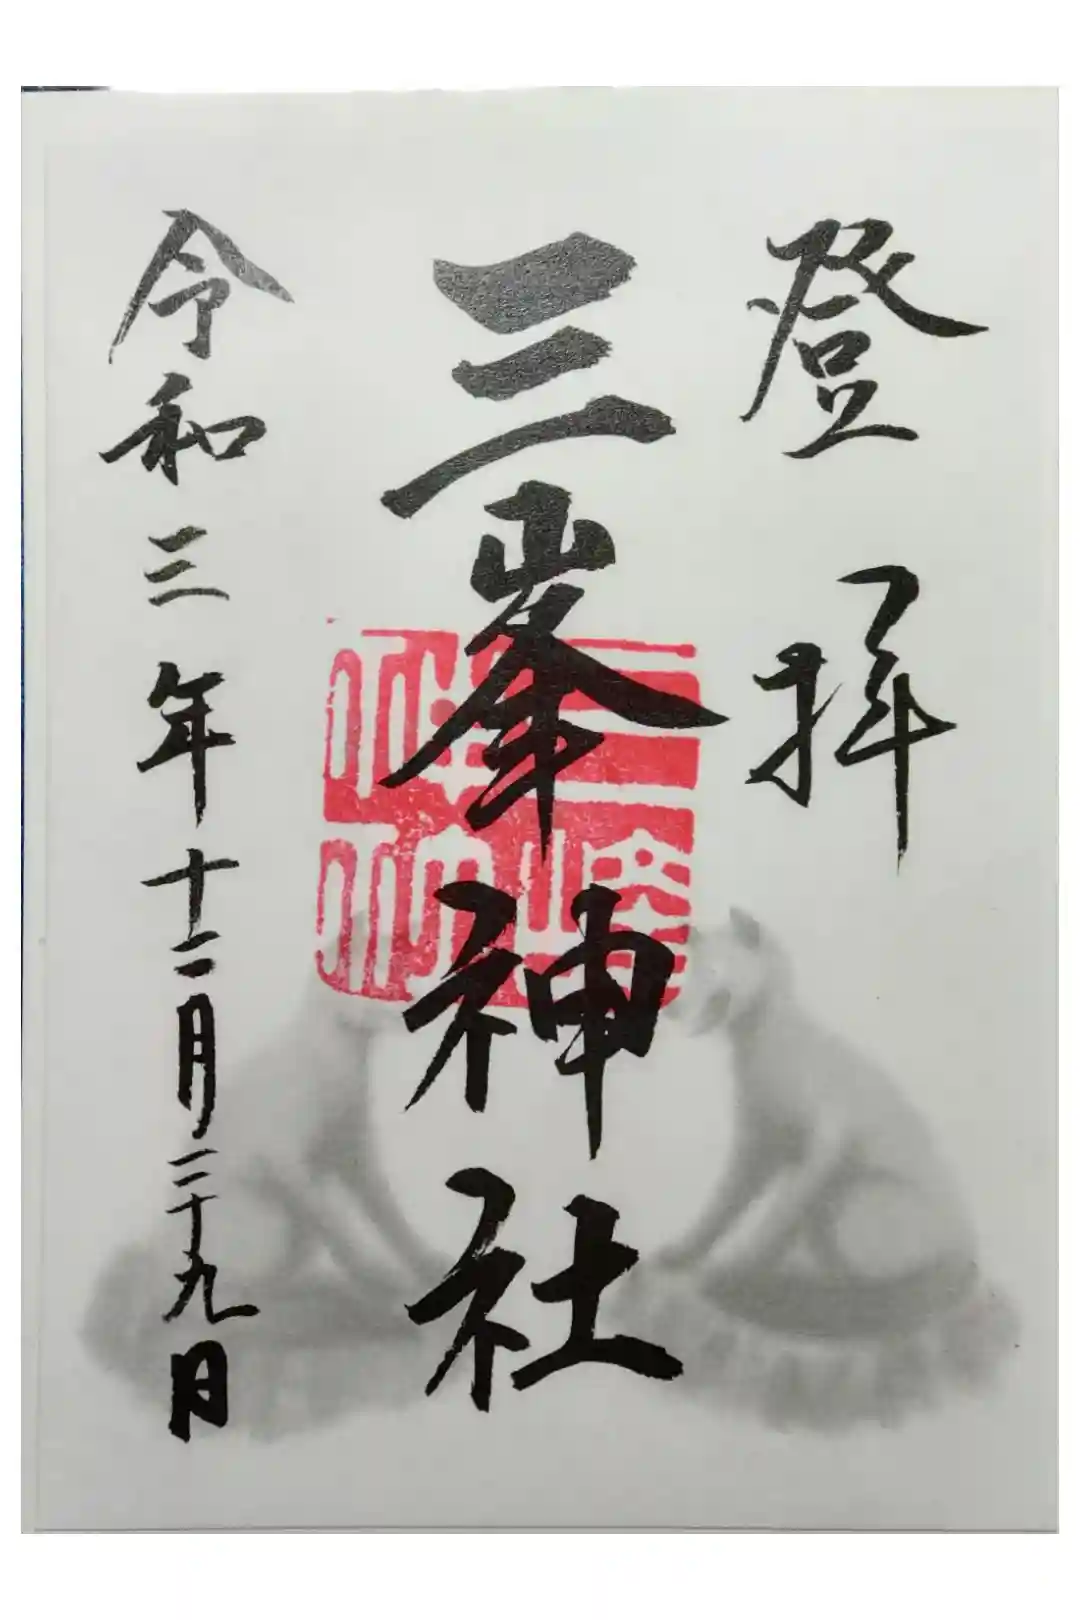 登拝
三峯神社
令和三年十二月二十九日
三峰神社